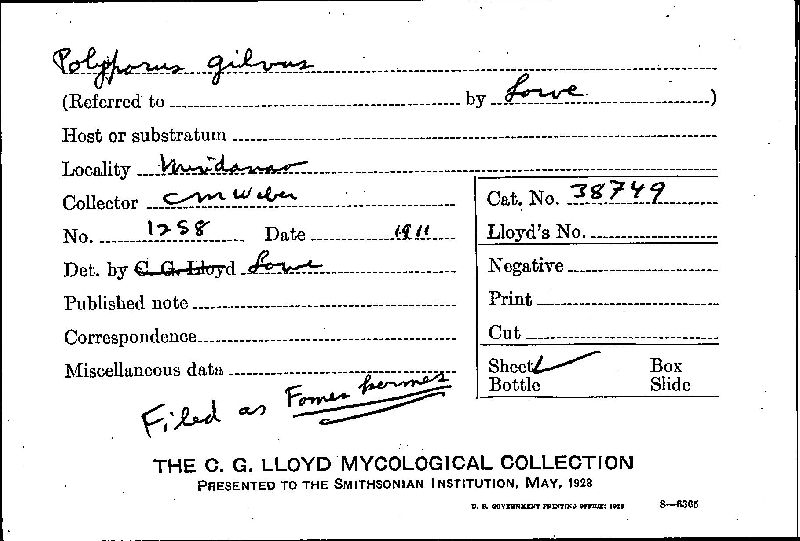 Polyporus gilvus
(Referred to by Lowe )
Host or substratum
Locality Mindanao
Collector C M Weber
No. 1258 Date 1911
Det. by C. G. Lloyd Lowe
Published note
Correspondence
Miscellaneous data
Cat. No. 38749
Lloyd's No.
Negative
Print
Cut
Sheet ✓ Box
Bottle Slide
Filed as Fomes kermes
THE C. G. LLOYD MYCOLOGICAL COLLECTION
PRESENTED TO THE SMITHSONIAN INSTITUTION, MAY, 1928
U. S. GOVERNMENT PRINTING OFFICE: 1928 8—6365